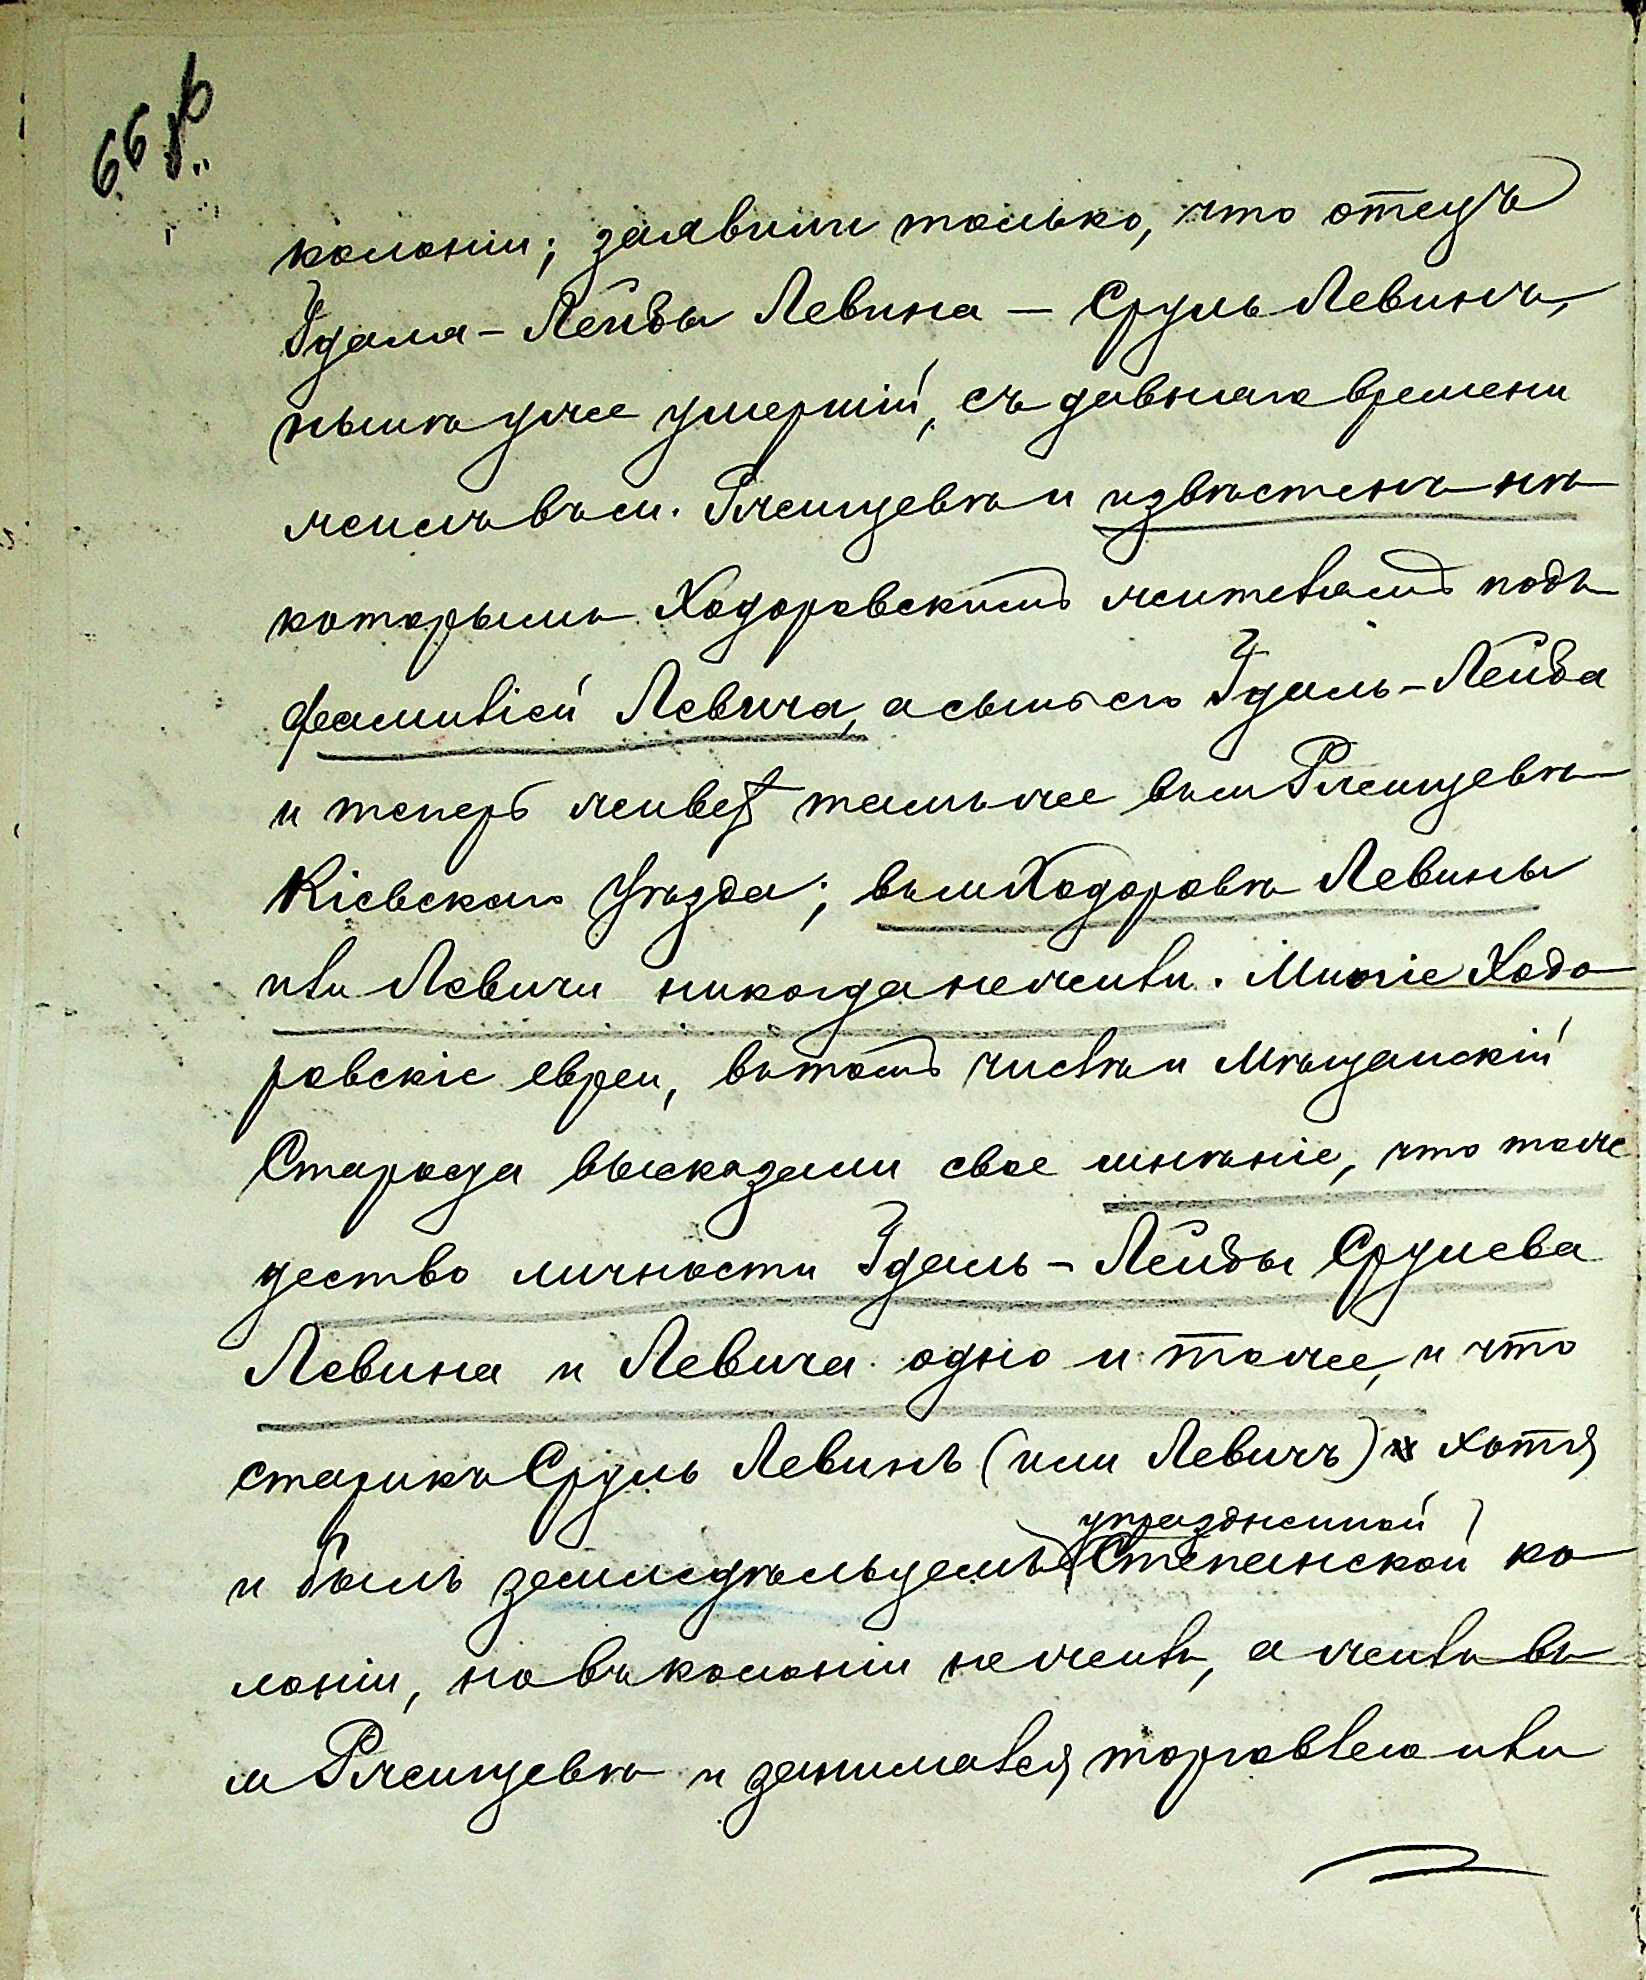 66 об.
колоніи; заявили только, что отецъ
Удаля-Лейбы Левина — Сруль Левинъ,
нынѣ уже умершій, съ давняго времени
жилъ въ м. Ржищевѣ и извѣстенъ нѣ
которымъ Ходоровскимъ жителямъ подъ
фамиліей Левича, а сынъ его Удаль-Лейба
и теперь живетъ тамъ же въ м Ржищевѣ
Кіевскаго уѣзда; въ м Ходоровѣ Левины
или Левичи никогда не жили. Многіе Ходо
ровскіе евреи, въ томъ числѣ и Мѣщанскій
Староста высказали свое мнѣніе, что тоже
дество личности Удаль-Лейбы Срулева
Левина и Левича одно и тоже, и что
старикъ Сруль Левинъ (или Левичъ) хотя
упраздненной
и былъ земледѣльцемъ Степанской ко
лоніи, но въ колоніи не жилъ, а жилъ въ
м Ржищевѣ и занимался торговлею или